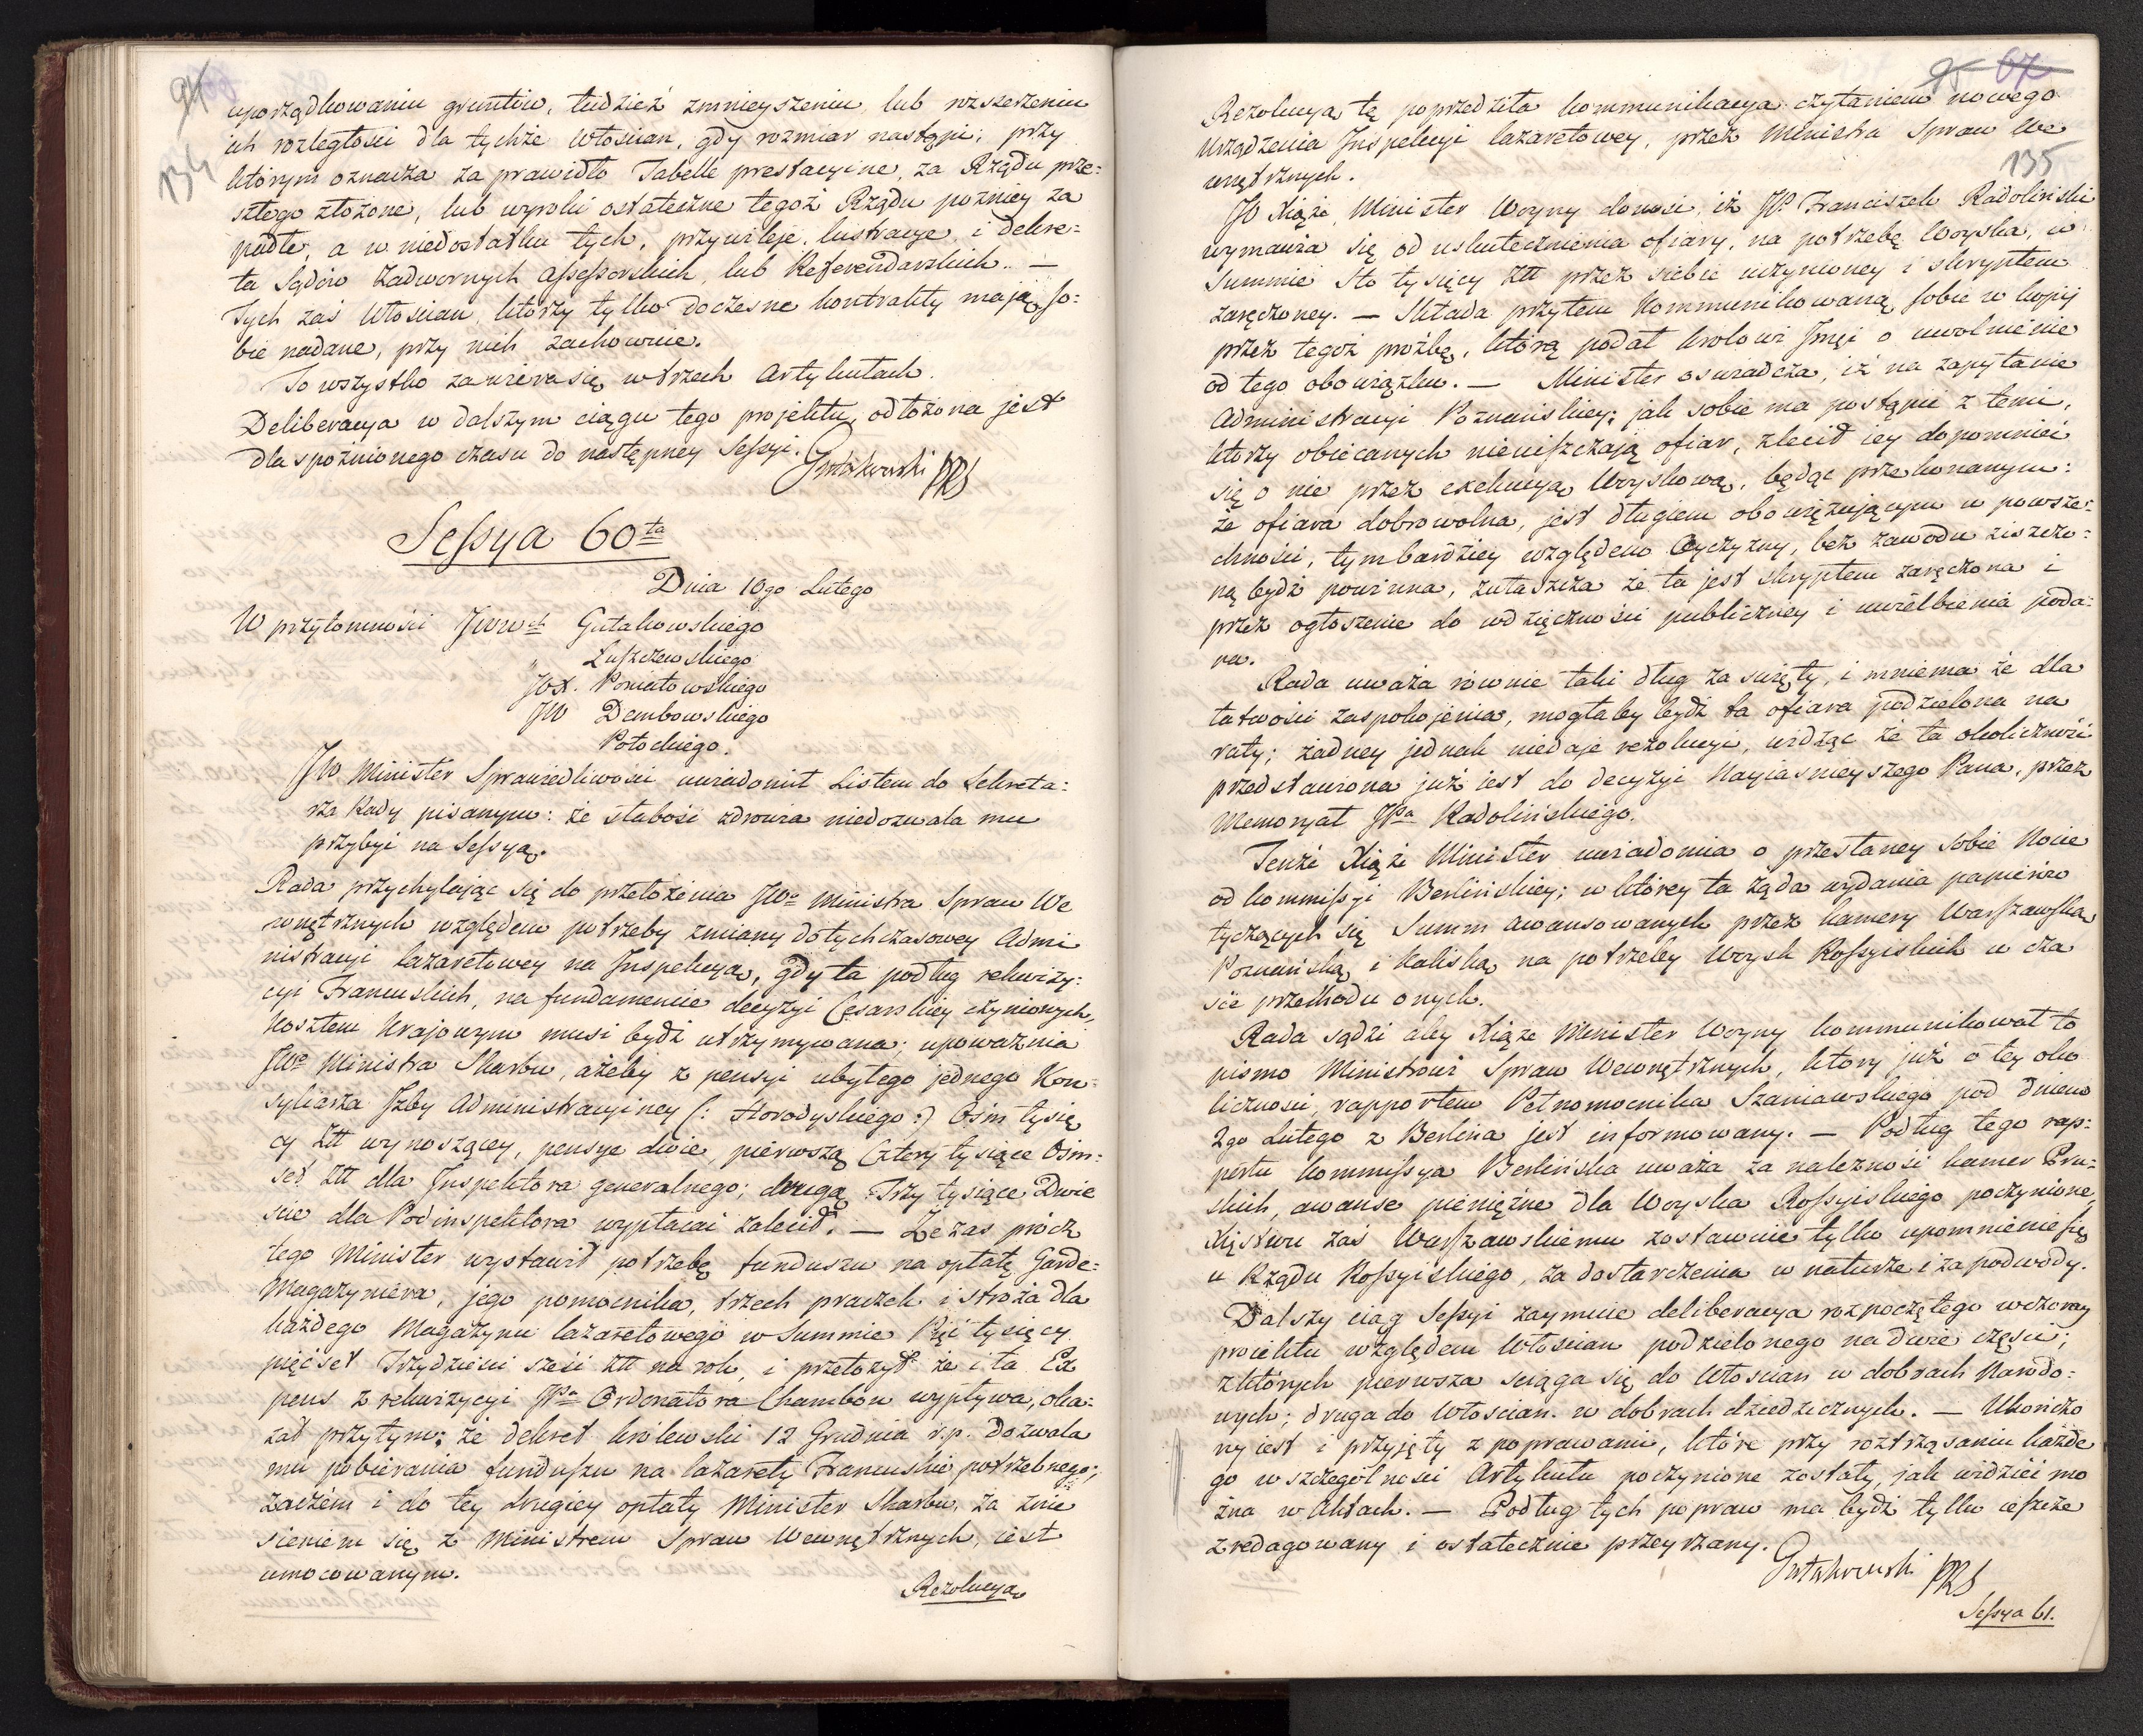 94
134
uporządkowaniu gruntów, tudzież zmnieyszeniu lub rozszerzeniu
ich rozległości dla tychże Włościan, gdy rozmiar nastąpi; przy
którym oznacza za prawidło Tabelle prestacyine, za Rządu prze=
szłego złożone, lub wyroki ostateczne tegoż Rządu poźniey za
padłe, a w niedostatku tych, przywileje, lustracye i dekre=
ta Sądów Zadwornych Assessorskich, lub Referendarskich. —
Tych zaś Włościan, którzy tylko doczesne kontrakty mają so=
bie nadane, przy nich zachowuie.
To wszystko zawiera się w trzech Artykułach.
Deliberacya w dalszym ciągu tego projektu, odłożona jest
dla spoźnionego czasu do następney Sessyi. Gutakowski PRS
Sessya 60ta
Dnia 10go Lutego
W przytomności JWWch Gutakowskiego
" Luszczewskiego
JOX. Poniatowskiego
JW Dembowskiego
Potockiego.
JW Minister Sprawiedliwości uwiadomił Listem do Sekreta=
rza Rady pisanym: że słabość zdrowia niedozwala mu
przybyć na Sessyą.
Rada przychylając się do przełożenia JWo Ministra Spraw We
wnętrznych względem potrzeby zmiany dotychczasowey Admi
nistracyi lazaretowey na Inspekcyą, gdy ta podług rekwizy=
cyi Francuskich, na fundamencie decyzyi Cesarskiey czynionych,
kosztem krajowym musi bydź utrzymywana; upoważnia
JWo Ministra Skarbu, ażeby z pensyi ubyłego jednego Kon=
syliarza Izby Administracyiney (: Horodyskiego :) Ośm tysię
cy Złł wynoszącey, pensye dwie, pierwszą Cztery tysiące Ośm=
set Złł dla Inspektora generalnego; drugą Trzy tysiące Dwie
ście dla Podinspektora wypłacać zalecił. — Że zas prócz
tego Minister wystawił potrzebę funduszu na opłatę Garde=
Magazyniera, jego pomocnika, trzech praczek i stróża dla
każdego Magazynu lazaretowego w Summie Pięć tysięcy
pięćset Trzydzieści sześć Złł na rok, i przełożył że i ta Ex
pens z rekwizycyi JPa Ordonatora Chambon wypływa, oka=
zał przytym: że dekret królewski 12 Grudnia r.p. dozwala
mu pobierania funduszu na lazarety Francuskie potrzebnego;
zaczém i do tey drugiey opłaty Minister Skarbu, za znie
sieniem się z Ministrem Spraw Wewnętrznych, iest
umocowanym.
Rezolucyą
95 67
135
Rezolucyą tę poprzedziła kommunikacya czytaniem nowego
urządzenia Inspekcyi lazaretowey, przez Ministra Spraw We
wnętrznych.
JO Xiąże Minister Woyny donosi, iż JP Franciszek Radoliński
wymawia się od uskutecznienia ofiary, na potrzebę Woyska, w
Summie Sto tysięcy Złł przez siebie uczynioney i skryptem
zaręczoney. — Składa przytem kommunikowaną sobie w kopij
przez tegoż prożbę, którą podał Krolowi Jmci o uwolnienie
od tego obowiązku. — Minister oswiadcza, iż na zapytanie
Administracyi Poznańskiey: jak sobie ma postąpić z temi,
którzy obiecanych nieuiszczają ofiar, zlecił iey dopomnieć
się o nie przez exekucyą Woyskową, będąc przekonanym:
że ofiara dobrowolna, jest długiem obowięzującym w powsze=
chności, tym bardziey względem Oyczyzny, bez zawodu ziszczo=
ną bydź powinna, zwłaszcza że ta jest skryptem zaręczona i
przez ogłoszenie do wdzięczności publiczney i uwielbienia poda=
na.
Rada uważa równie taki dług za swięty, i mniema że dla
łatwości zaspokojenia, mogłaby bydź ta ofiara podzielona na
raty; żadney jednak niedaje rezolucyi, widząc że ta okoliczność
przedstawiona już iest do decyzyi Nayiaśnieyszego Pana, przez
Memoryał JPa Radolińskiego.
Tenże Xiąże Minister uwiadomia o przesłaney sobie Nocie
od kommissyi Berlińskiey; w którey ta żąda wydania papierów
tyczących się Summ awansowanych przez kamery Warszawską
Poznańską i Kaliską na potrzeby Woysk Rossyiskich w cza
sie przechodu onych.
Rada sądzi aby Xiąże Minister Woyny kommunikował to
pismo Ministrowi Spraw Wewnętrznych, który już o tey oko
liczności, rapportem Pełnomocnika Szaniawskiego pod dniem
2go Lutego z Berlina jest informowany. — Podług tego rap=
portu kommissya Berlińska uważa za należność kamer Pru=
skich, awanse pieniężne dla Woyska Rossyiskiego poczynione,
Xięstwu zaś Warszawskiemu zostawuie tylko upomnienie się
u Rządu Rossyiskiego, za dostarczenia w naturze i za podwody.
Dalszy ciąg Sessyi zaymuie deliberacya rozpoczętego wczoray
proiektu względem Włościan podzielonego na dwie części;
z których pierwsza sciąga się do Włościan w dobrach Narodo=
wych; druga do Włościan w dobrach dziedzicznych. — Ukończo
ny iest i przyjęty z poprawami, które przy roztrząsaniu każde
go w szczególności Artykułu poczynione zostały, jak widzieć mo
żna w Aktach. — Podług tych popraw ma bydź tylko ieszcze
zredagowany i ostatecznie przeyrzany.
Gutakowski PRS
Sessya 61.